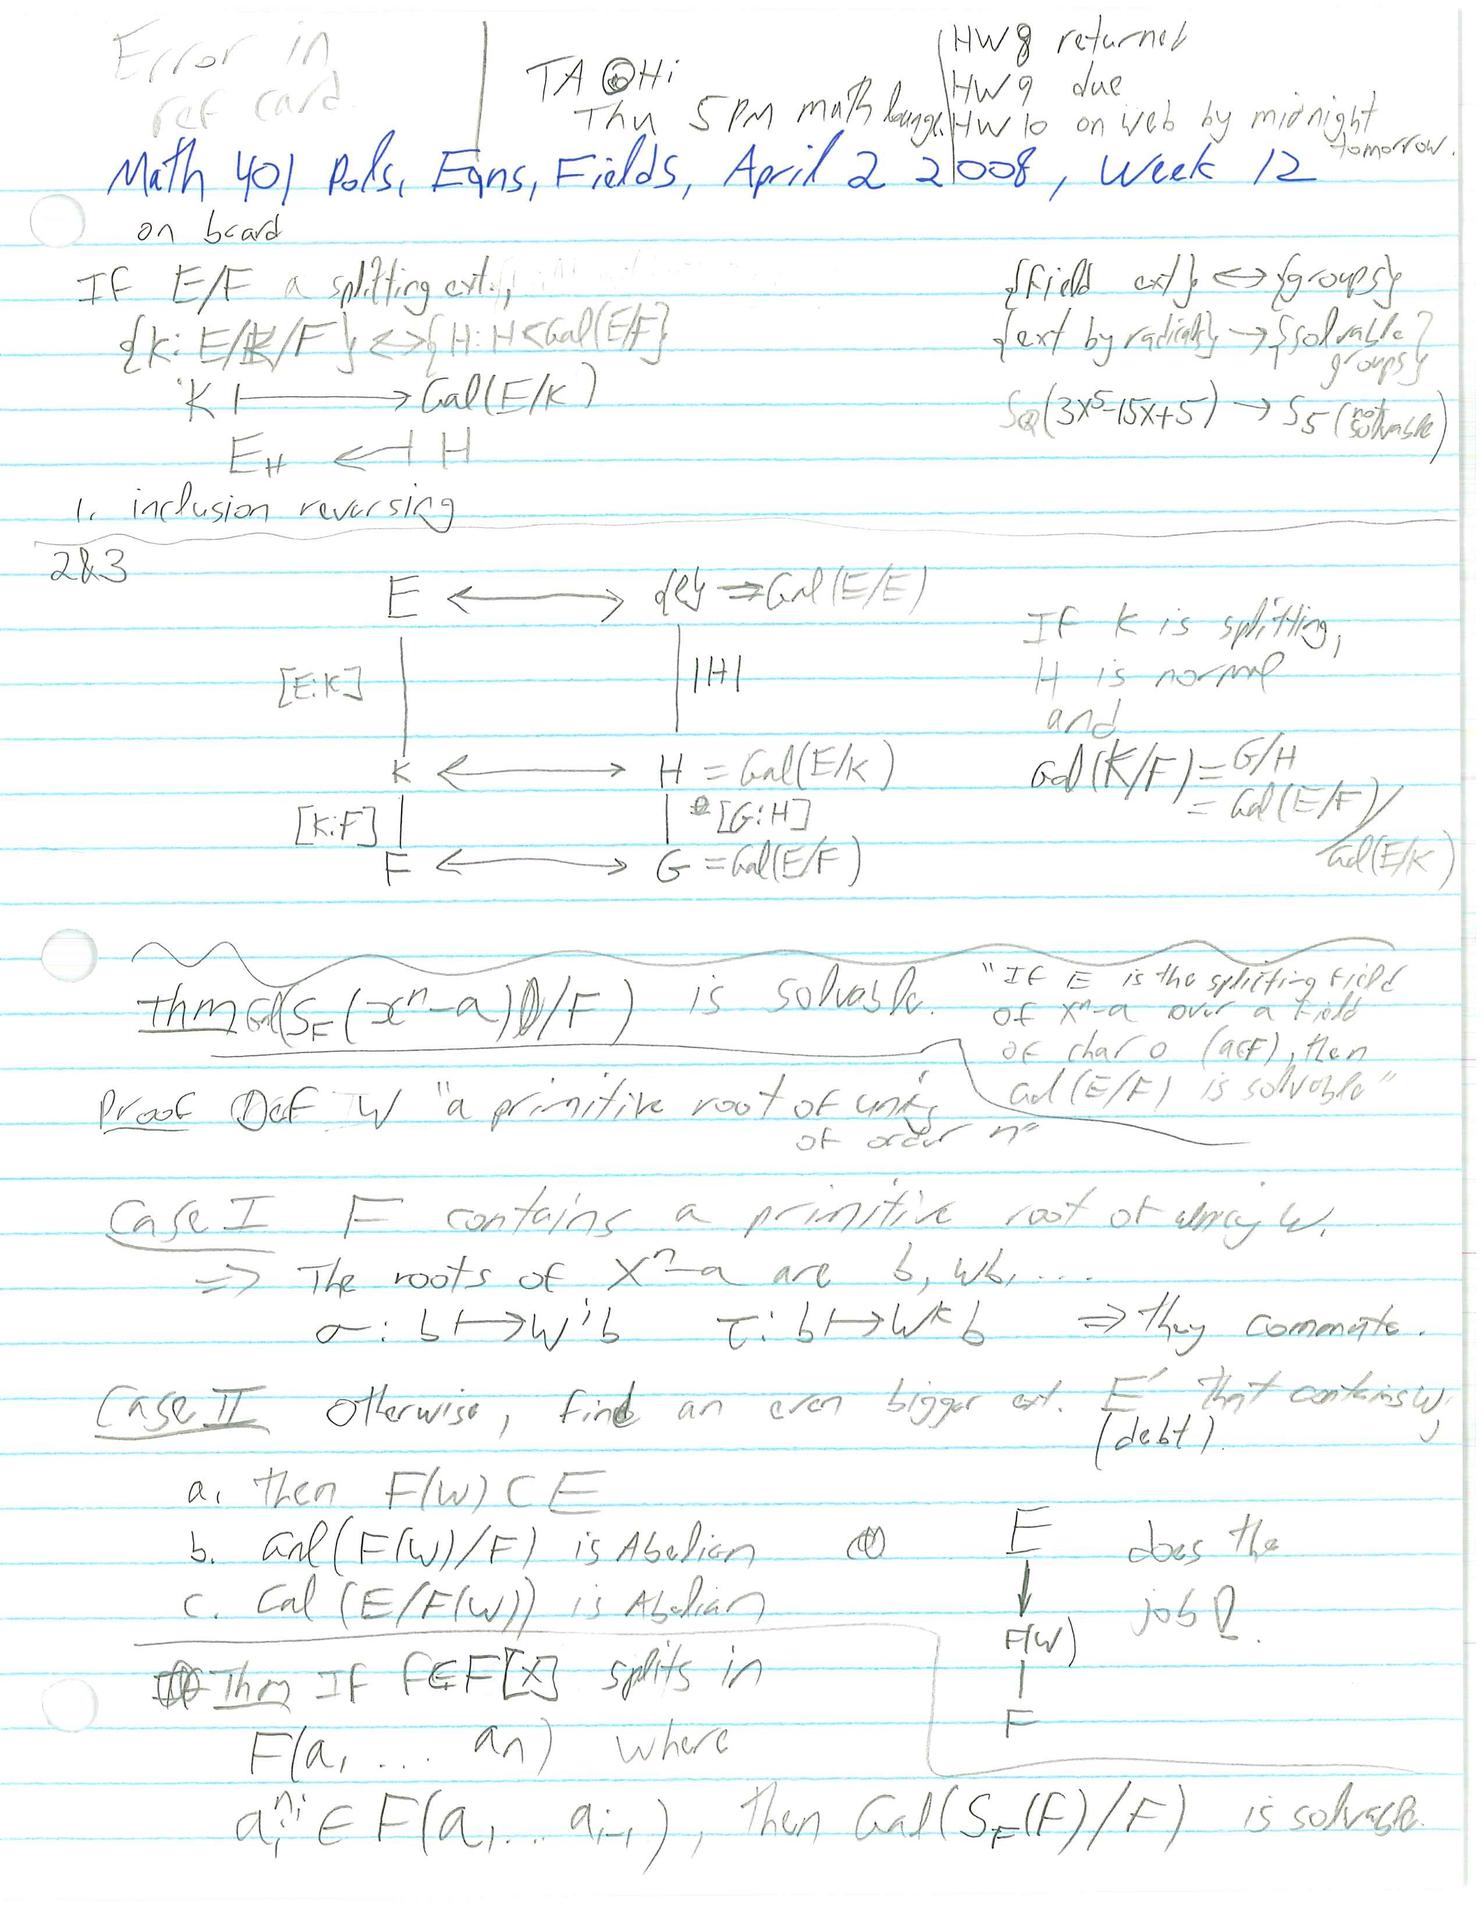 Error in
ref card.
TA OHi
Thu 5 PM math lounge.
HW 8 returned
HW 9 due
HW 10 on web by midnight
tomorrow.
Math 401 Pols, Eqns, Fields, April 2 2008, Week 12
on board
If E/F a splitting ext.,
{K: E/K/F} <-> {H: H<Gal(E/F)}
K |-> Gal(E/K)
E_H <-| H
1. inclusion reversing
{Field ext} <-> {groups}
{ext by radicals} -> {solvable
groups}
S_Q(3x^5-15x+5) -> S_5 (not
solvable)
2&3
E <-> {e} = Gal(E/E)
[E:K] |H|
K <-> H = Gal(E/K)
[K:F] [G:H]
F <-> G = Gal(E/F)
If K is splitting,
H is normal
and
Gal(K/F) = G/H
= Gal(E/F)/
Gal(E/K)
Thm Gal(S_F(x^n-a)/F) is solvable.
"If E is the splitting field
of x^n-a over a field
of char 0 (a∈F), then
Gal(E/F) is solvable"
Proof Def W "a primitive root of unity
of order n"
Case I F contains a primitive root of unity w.
=> The roots of x^n-a are b, wb, ...
σ: b |-> w^i b τ: b |-> w^k b => they commute.
Case II otherwise, find an even bigger ext. E' that contains w,
(debt).
a. then F(w) ⊂ E
b. Gal(F(w)/F) is Abelian
c. Gal(E/F(w)) is Abelian
E
F(w)
F
does the
job!
Thm If f∈F[x] splits in
F(a_1 ... a_n) where
a_i^{n_i} ∈ F(a_1 ... a_{i-1}), then Gal(S_F(f)/F) is solvable.